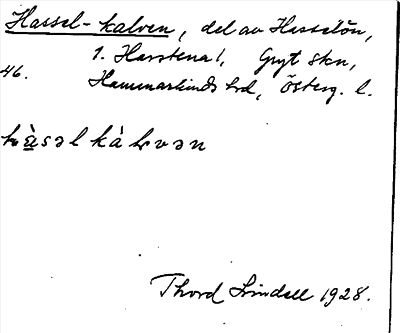 Hassel-kalven, del av Hasselön,
1. Harstena 1, Gryt skn,
46. Hammarkinds hd, Österg. l.
hàsəl kàlvən
Thord Lindell 1928.